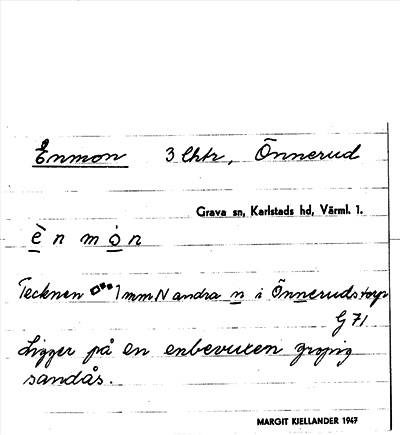 Enmon 3 lhtr, Önnerud
Grava sn, Karlstads hd, Värml. 1.
è n m o n
Tecknen 1 mm N andra n i Önnerudstorp
G 71
Ligger på en enbevuxen gropig
sandås.
MARGIT KJELLANDER 1947